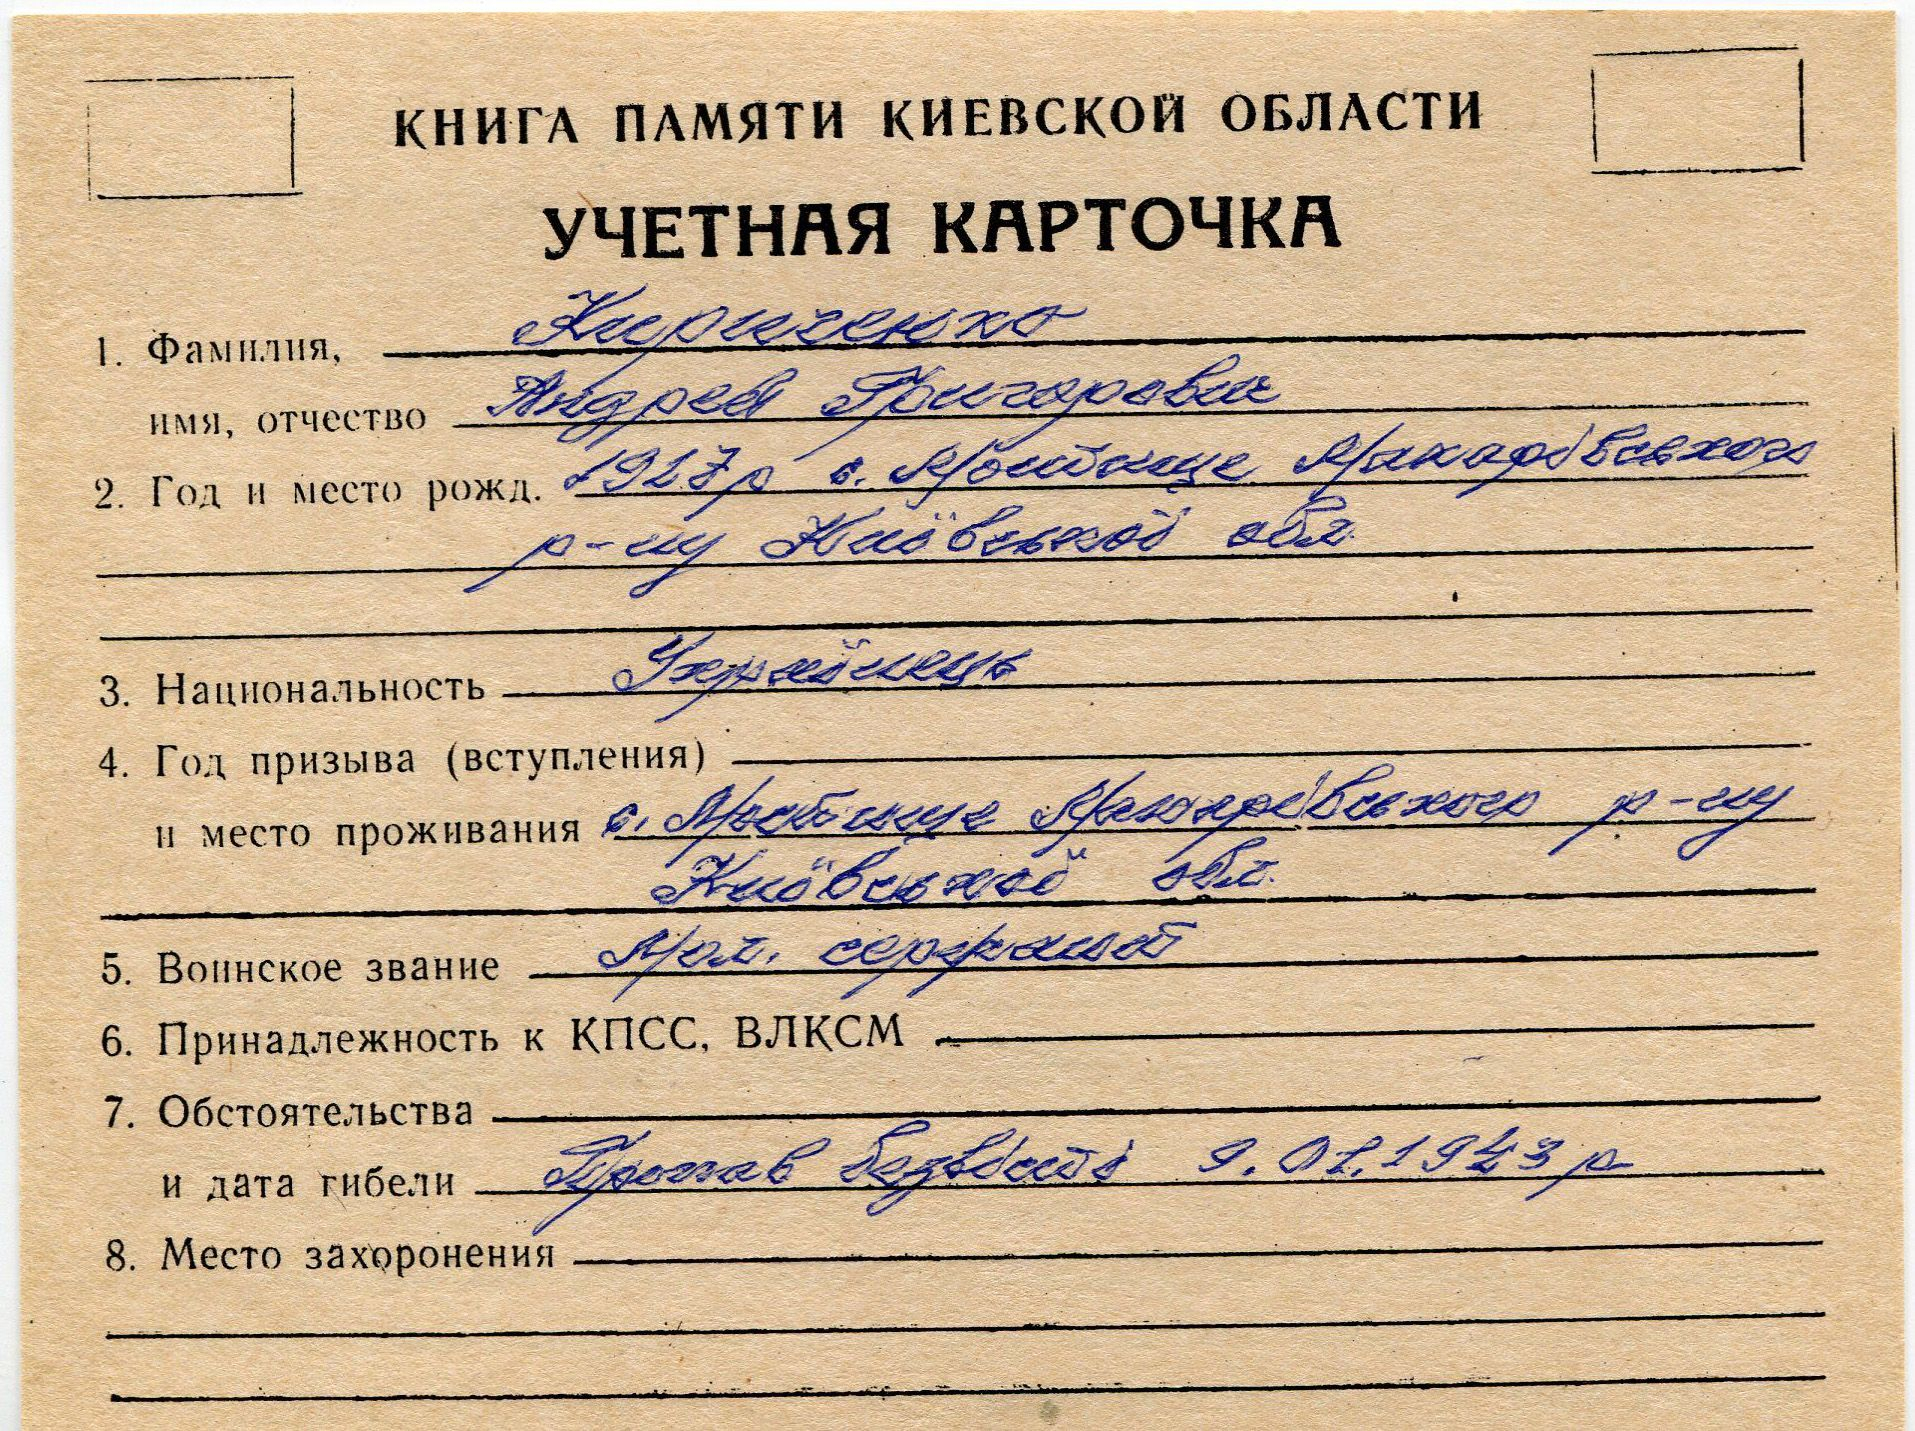 КНИГА ПАМЯТИ КИЕВСКОЙ ОБЛАСТИ
УЧЕТНАЯ КАРТОЧКА
1. Фамилия, Кириченко
имя, отчество Андрей Григорович
2. Год и место рожд. 1927р с. Мостище Макарівського
р-ну Київської обл.
3. Национальность Українець
4. Год призыва (вступления)
и место проживания с. Мостище Макарівського р-ну
Київської обл.
5. Воинское звание Мол. сержант
6. Принадлежность к КПСС, ВЛКСМ
7. Обстоятельства
и дата гибели Пропав безвісті 9.01.1943р
8. Место захоронения